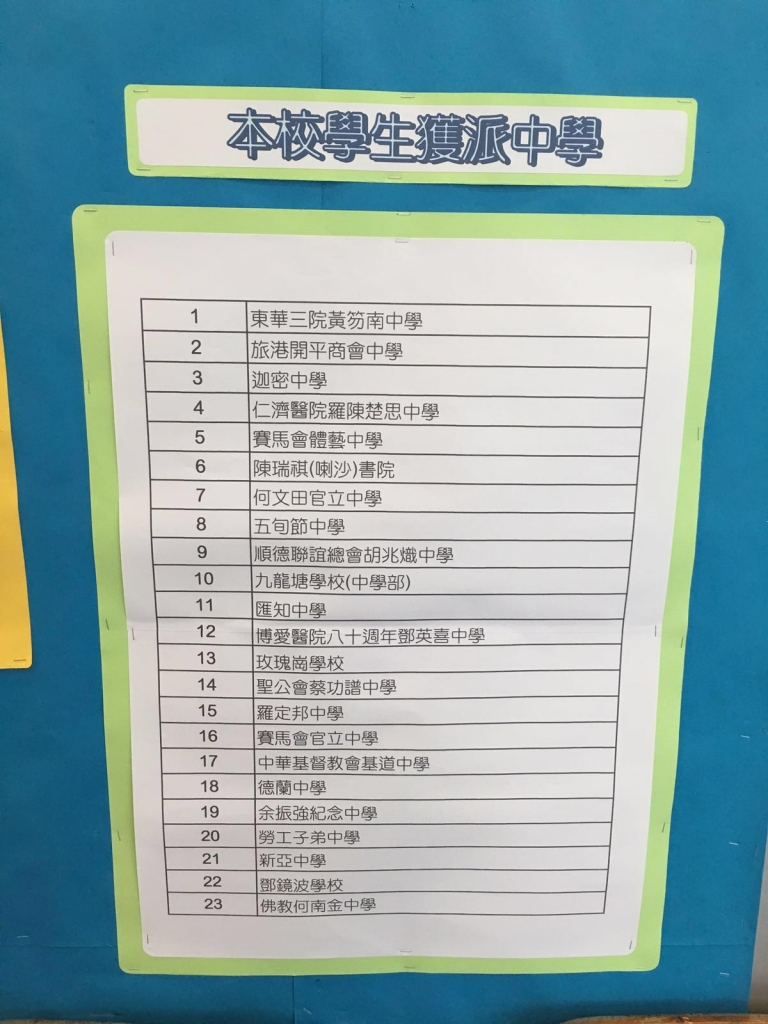 本校學生獲派中學
1 東華三院黃笏南中學
2 旅港開平商會中學
3 迦密中學
4 仁濟醫院羅陳楚思中學
5 賽馬會體藝中學
6 陳瑞祺(喇沙)書院
7 何文田官立中學
8 五旬節中學
9 順德聯誼總會胡兆熾中學
10 九龍塘學校(中學部)
11 匯知中學
12 博愛醫院八十週年鄧英喜中學
13 玫瑰崗學校
14 聖公會蔡功譜中學
15 羅定邦中學
16 賽馬會官立中學
17 中華基督教會基道中學
18 德蘭中學
19 余振強紀念中學
20 勞工子弟中學
21 新亞中學
22 鄧鏡波學校
23 佛教何南金中學